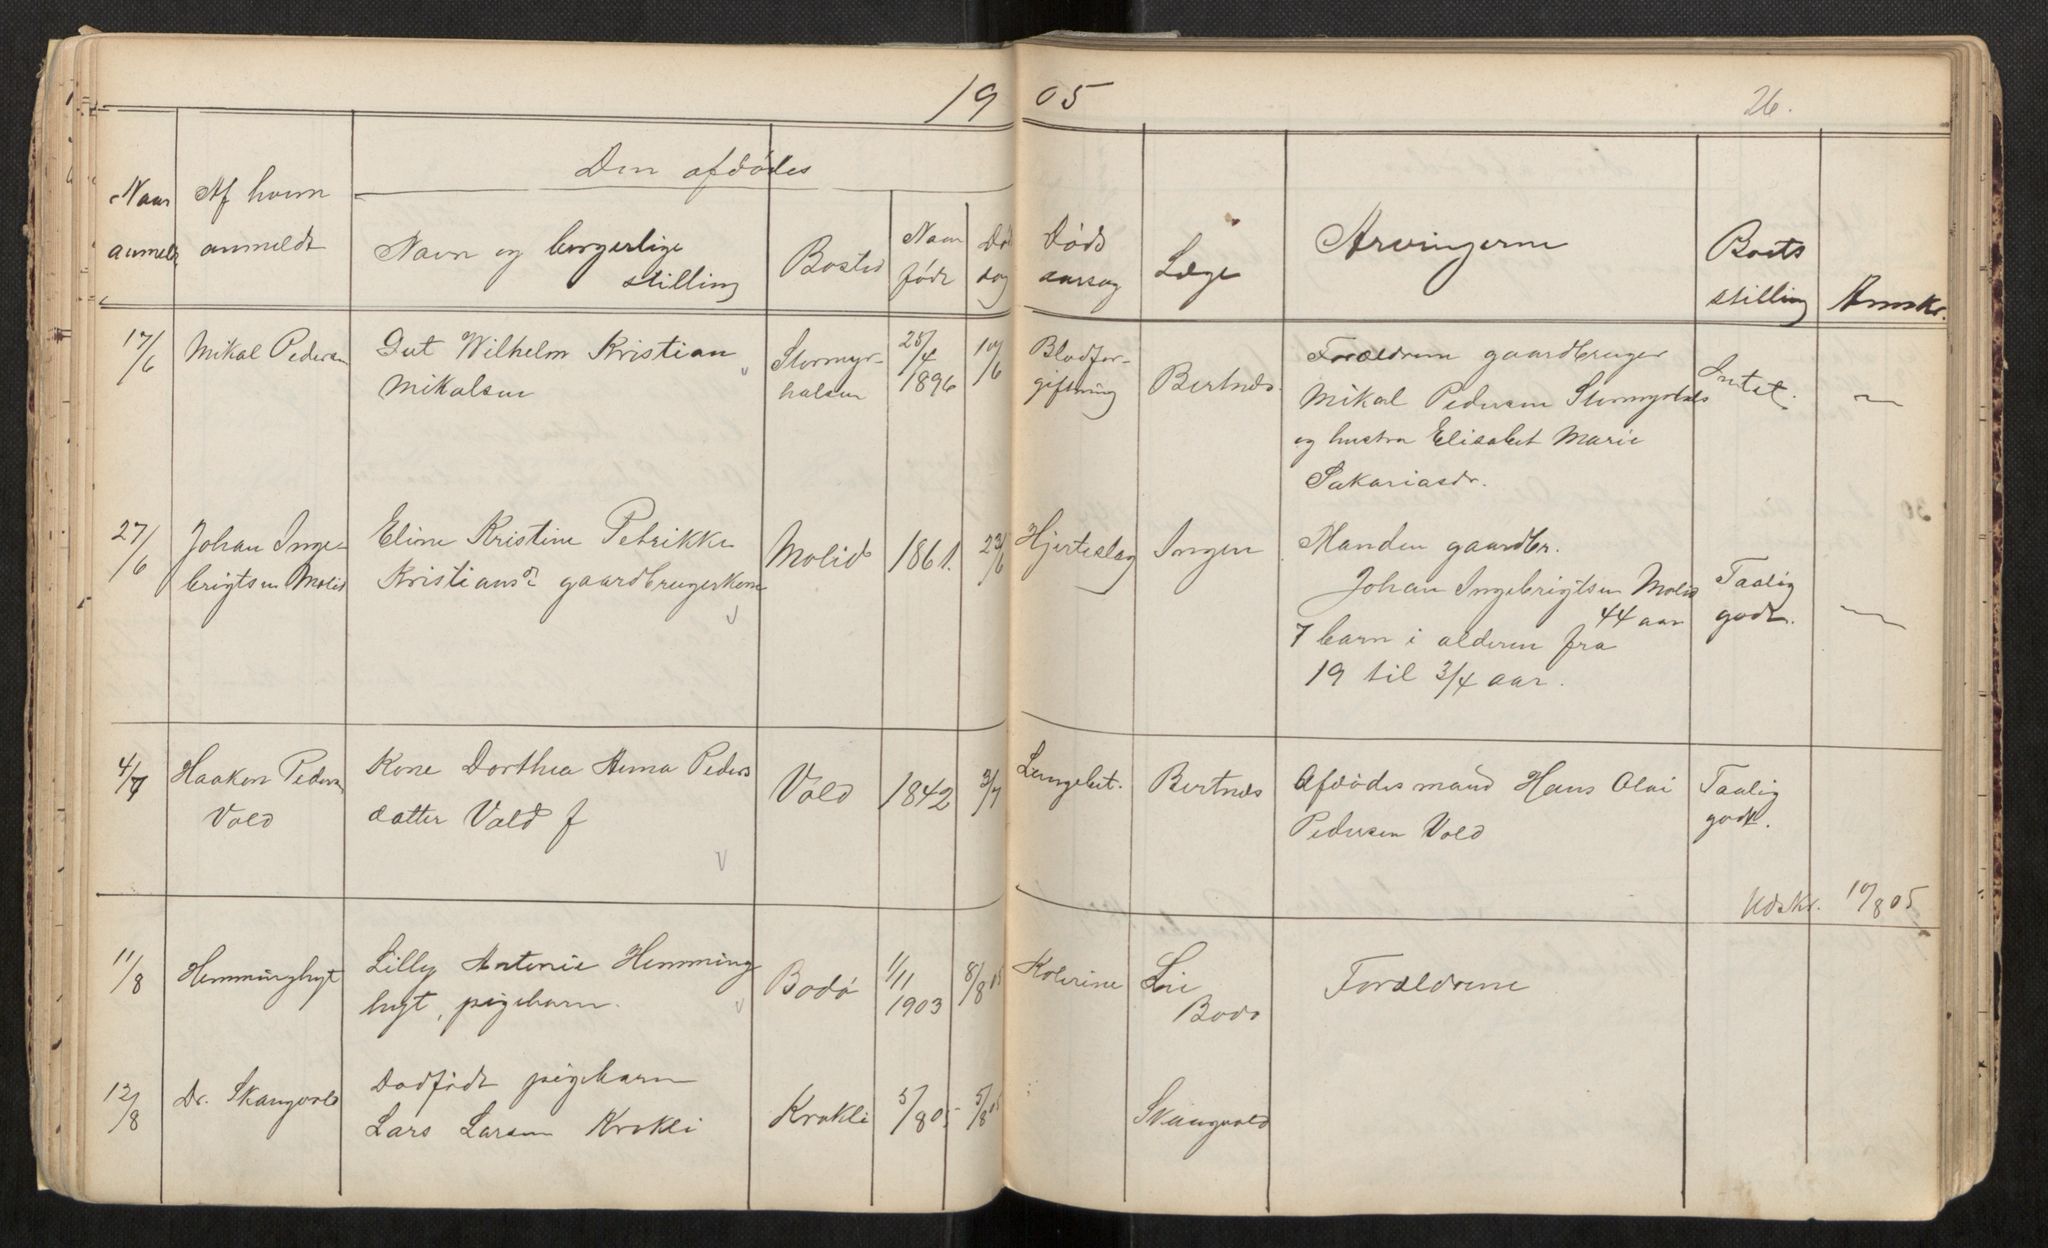 1905
26.
Den afdødes
Naar anmeldt
Af hvem anmeldt
Navn og borgerlige stilling
Bosted
Naar født
Døds dag
Døds aarsag
Læge
Arvingerne
Boets stilling
Anmkr.
17/6
Mikal Pedersen
Gut Wilhelm Kristian
Mikalsen
Stormyr-
halsen
25/4
1896
10/6
Blodfor-
giftning
Bertnæs.
Forældrene gaardbruger
Mikal Pedersen
og hustru Elisabet Marie
Sakariasdr.
Intet.
27/6
Johan Inge-
brigtsen Molid
Eline Kristine Petrikke
Kristiansdr gaardbrugerkone
Molid
1861.
23/6
Hjerteslag
Ingen
Manden gaardbr.
Johan Ingebrigtsen Molid
44 aar
7 barn i alderen fra
19 til 3/4 aar.
Taalig
godt.
4/7
Haakon Pedersen
Vold
Kone Dorthea Anna Peders
datter Vold f
Vold
1842
3/7
Lungebet.
Bertnæs
Afdødes mand Hans Olai
Pedersen Vold
Taalig
godt.
Udskr. 10/8 05
11/8
Hemminghyt
Lilly Antonie Hemming
hyt, pigebarn.
Bodø
1/11
1903
8/8 05
Kolerine
Lie
Bodø
Forældrene
12/8
Dr. Skaugvold
Dødfødt pigebarn
Lars Larsen Krokli
Krokli
5/8 05
5/8 05
Skaugvold